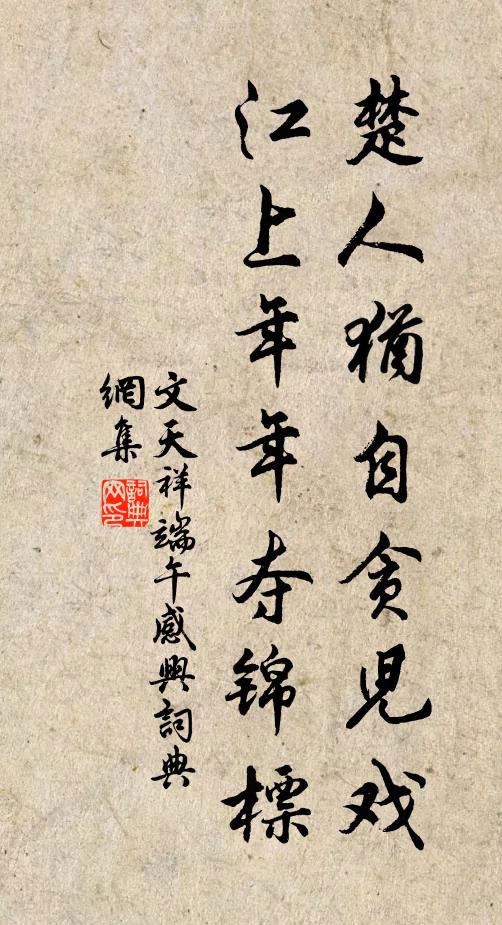 楚人犹自贪兒戏
江上年年夺锦標
文天祥端午感興詞典
網集
詞典
网印